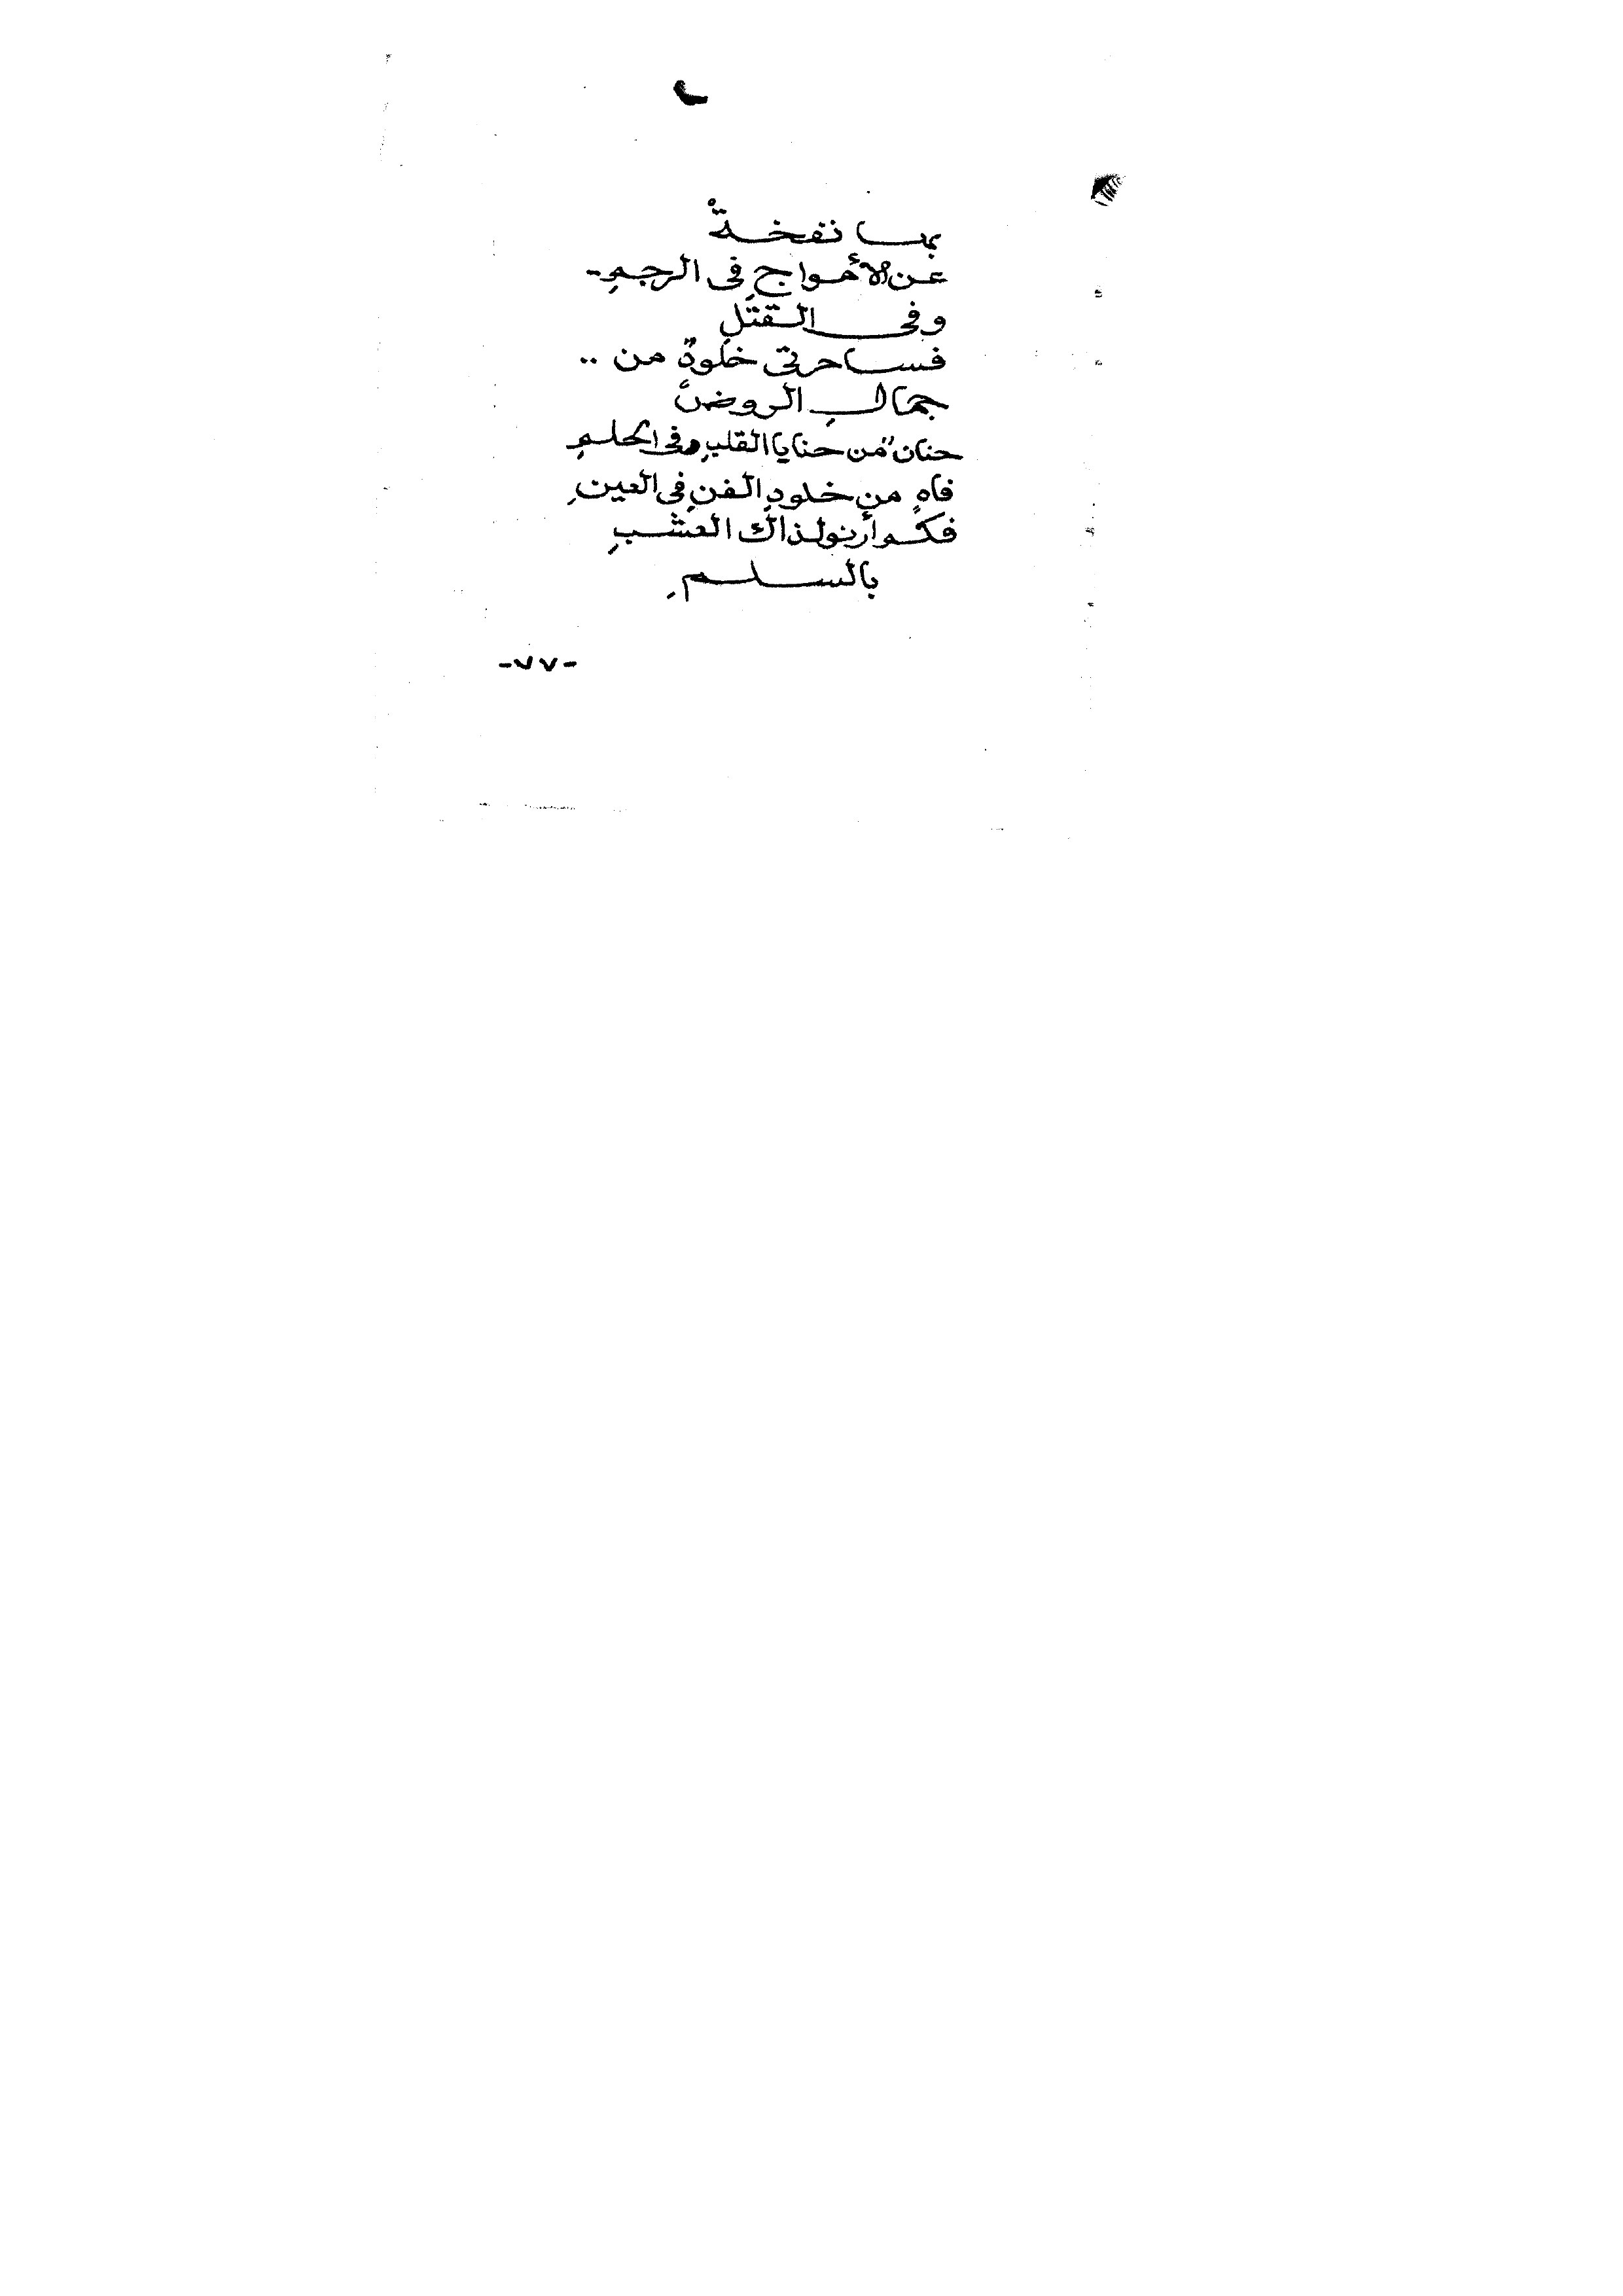 بها نفخةْ
عن الأمواجِ فى الرجمِ -
وفى القتلِ
فساحرتى خلودٌ من ..
جمالِ الروضْ
حنانٌ من حنايا القلبِ وفى الحلمِ
فاهٍ من خلودِ الفنِ فى العينِ
فكم أرنو لذاك العشبِ
بالسلمِ
- ٧٧ -